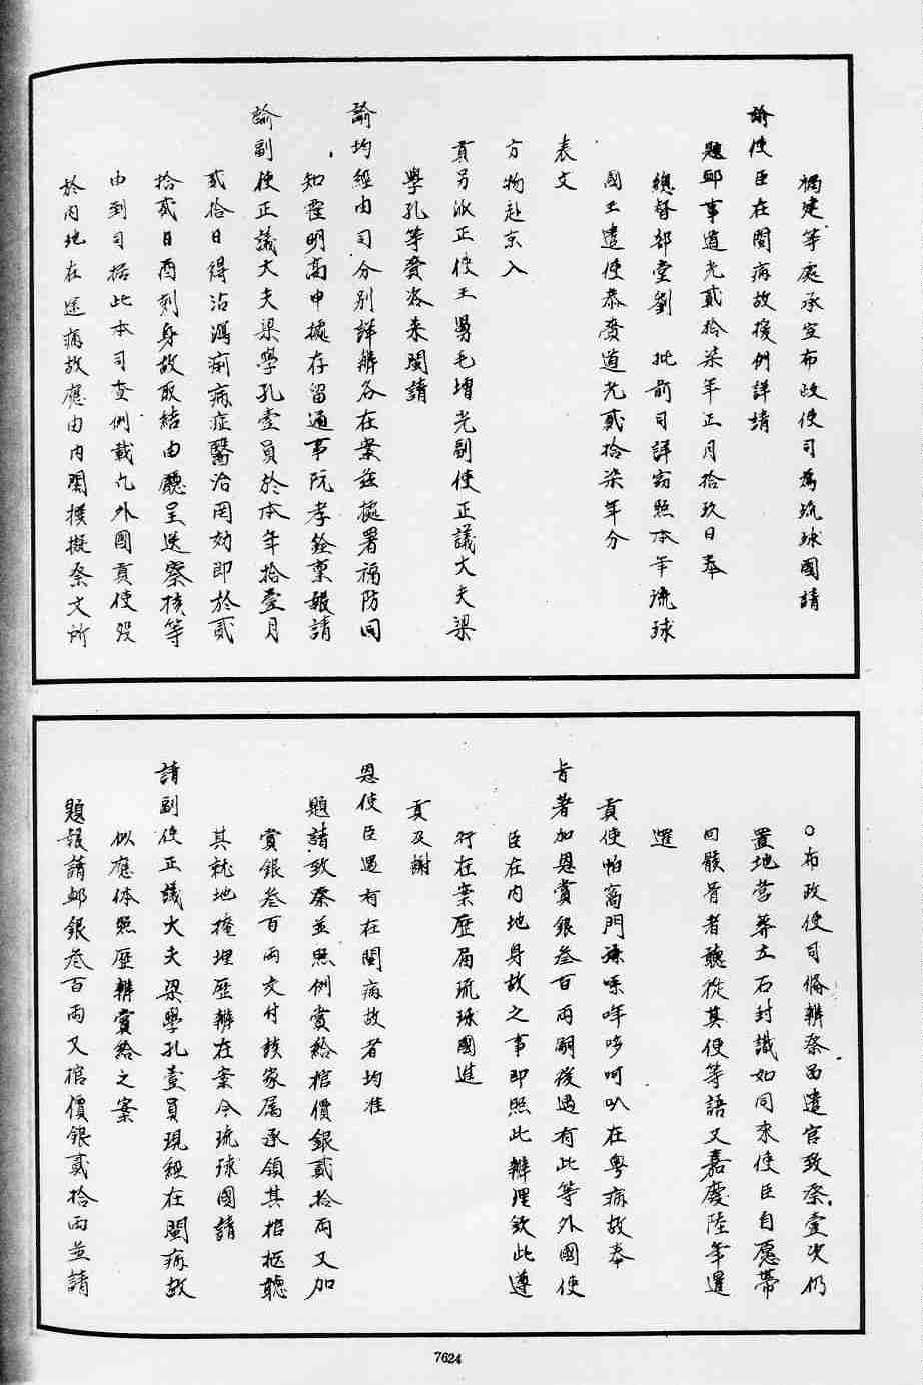 福建等處承宣布政使司為琉球國請
諭使臣在閩病故援例詳請
題卹事道光貳拾柒年正月拾玖日奉
總督部堂劉 批前司詳窃照本年流球
國王遣使恭賫道光貳拾柒年分
表文
方物赴京入
貢另派正使王舅毛增光副使正議大夫梁
學孔等賫咨来閩請
諭均經由司分别詳辦各在案茲據署福防同
知霍明高申據存留通事阮孝銓稟報請
諭副使正議大夫梁學孔壹員於本年拾壹月
貳拾日得沾瀉痢病症醫治罔効即於貳
拾貳日酉刻身故取結由廳呈送察核等
由到司據此本司查例載凡外國貢使歿
於内地在途病故應由内閣撰擬祭文所
○布政使司俻辦祭品遣官致祭壹次仍
置地營葬立石封識如同來使臣自愿帶
回骸骨者聽從其便等語又嘉慶陸年暹
暹
貢使帕窩們孫哖哆呵叭在粤病故奉
旨著加恩賞銀叁百両嗣後遇有此等外國使
臣在内地身故之事即照此辦理欽此遵
行在案歷届琉球國進
貢及謝
恩使臣遇有在閩病故者均准
題請致祭並照例賞給棺價銀貳拾両又加
賞銀叁百両交付該家属承領其棺柩聽
其就地掩埋歷辦在案今琉球國請
請副使正議大夫梁學孔壹員現經在閩病故
似應体照歷辦賞給之案
題報請卹銀叁百両又棺價銀貳拾両並請
7624